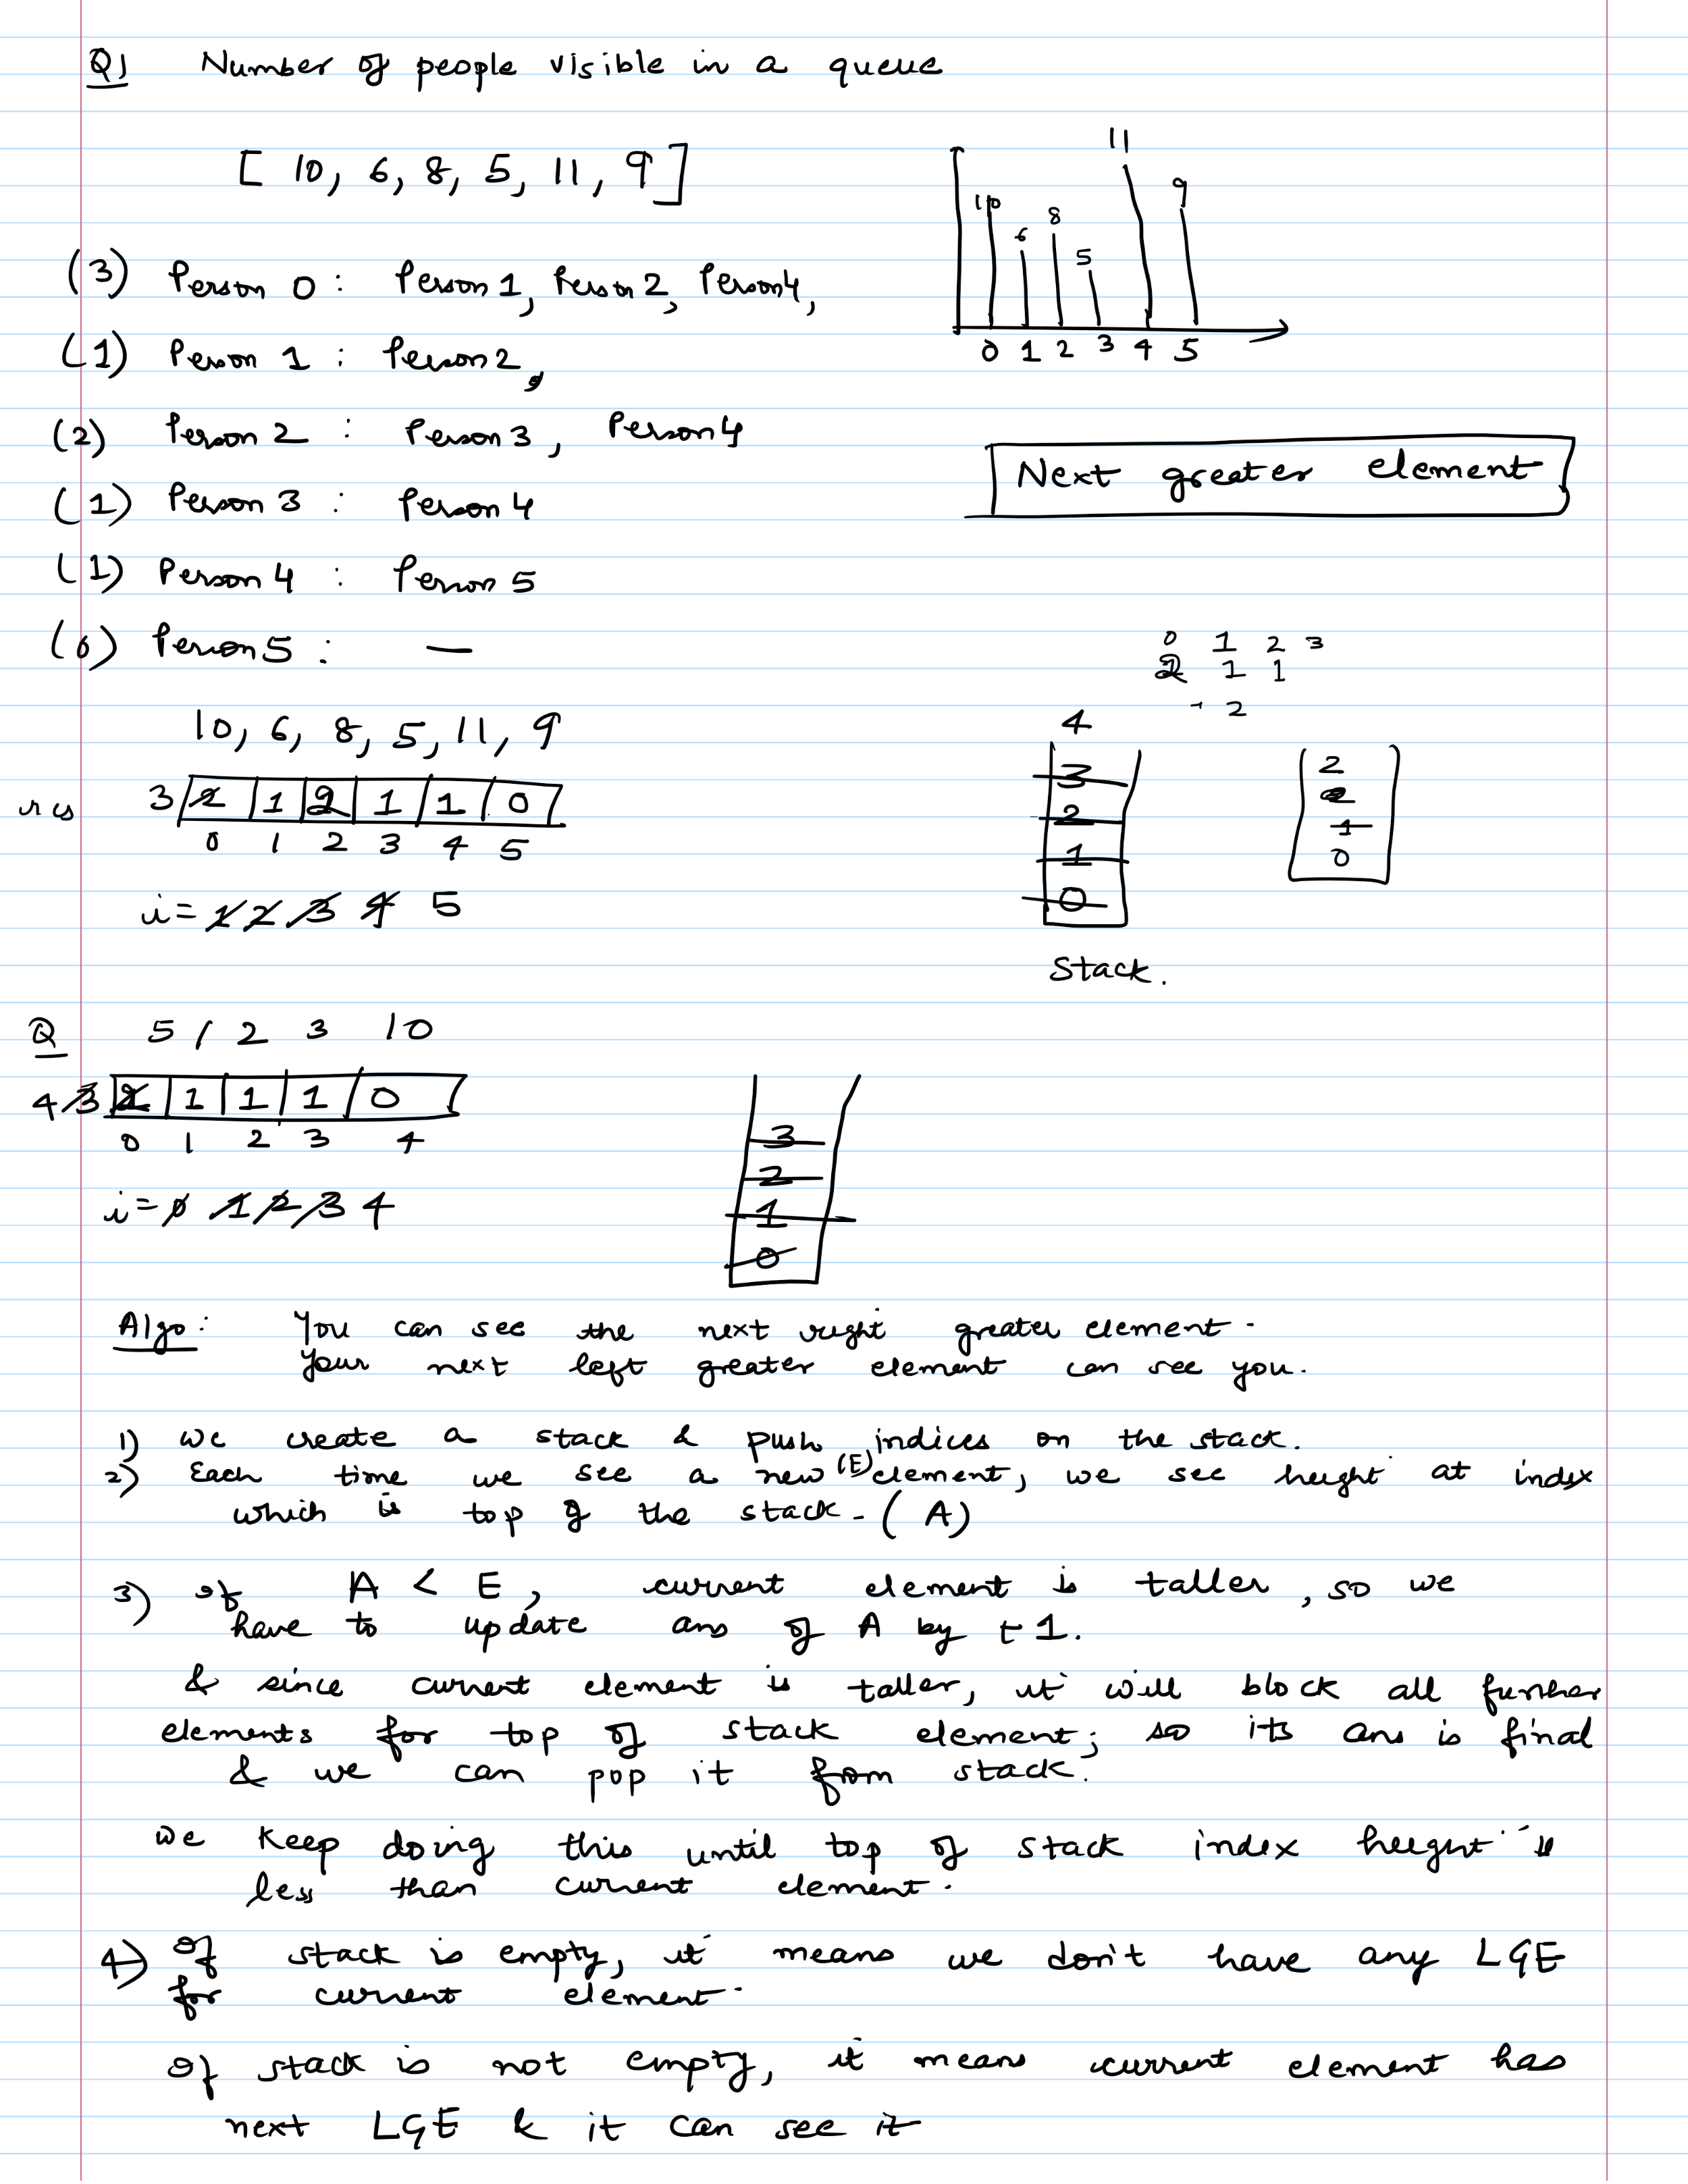 Q1 Number of people visible in a queue
[ 10, 6, 8, 5, 11, 9 ]
11
10 6 8 5 9
0 1 2 3 4 5
(3) Person 0 : Person 1, Person 2, Person 4,
(1) Person 1 : Person 2,
(2) Person 2 : Person 3, Person 4
Next greater element
(1) Person 3 : Person 4
(1) Person 4 : Person 5
(0) Person 5 : —
0 1 2 3
2 1 1
2
10, 6, 8, 5, 11, 9
res 3 2 1 2 1 1 0
0 1 2 3 4 5
i = 1 2 3 4 5
4
3
2
1
0
Stack.
2
1
0
Q 5 1 2 3 10
4 3 2 1 1 1 0
0 1 2 3 4
i = 0 1 2 3 4
3
2
1
0
Algo: You can see the next right greater element.
Your next left greater element can see you.
1) we create a stack & push indices on the stack.
2) Each time we see a new (E) element, we see height at index
which is top of the stack - (A)
3) If A < E, current element is taller, so we
have to update ans of A by +1.
& since current element is taller, it will block all further
elements for top of stack element; so its ans is final
& we can pop it from stack.
We keep doing this until top of stack index height is
less than current element.
4) If stack is empty, it means we don't have any LGE
for current element.
If stack is not empty, it means current element has
next LGE & it can see it